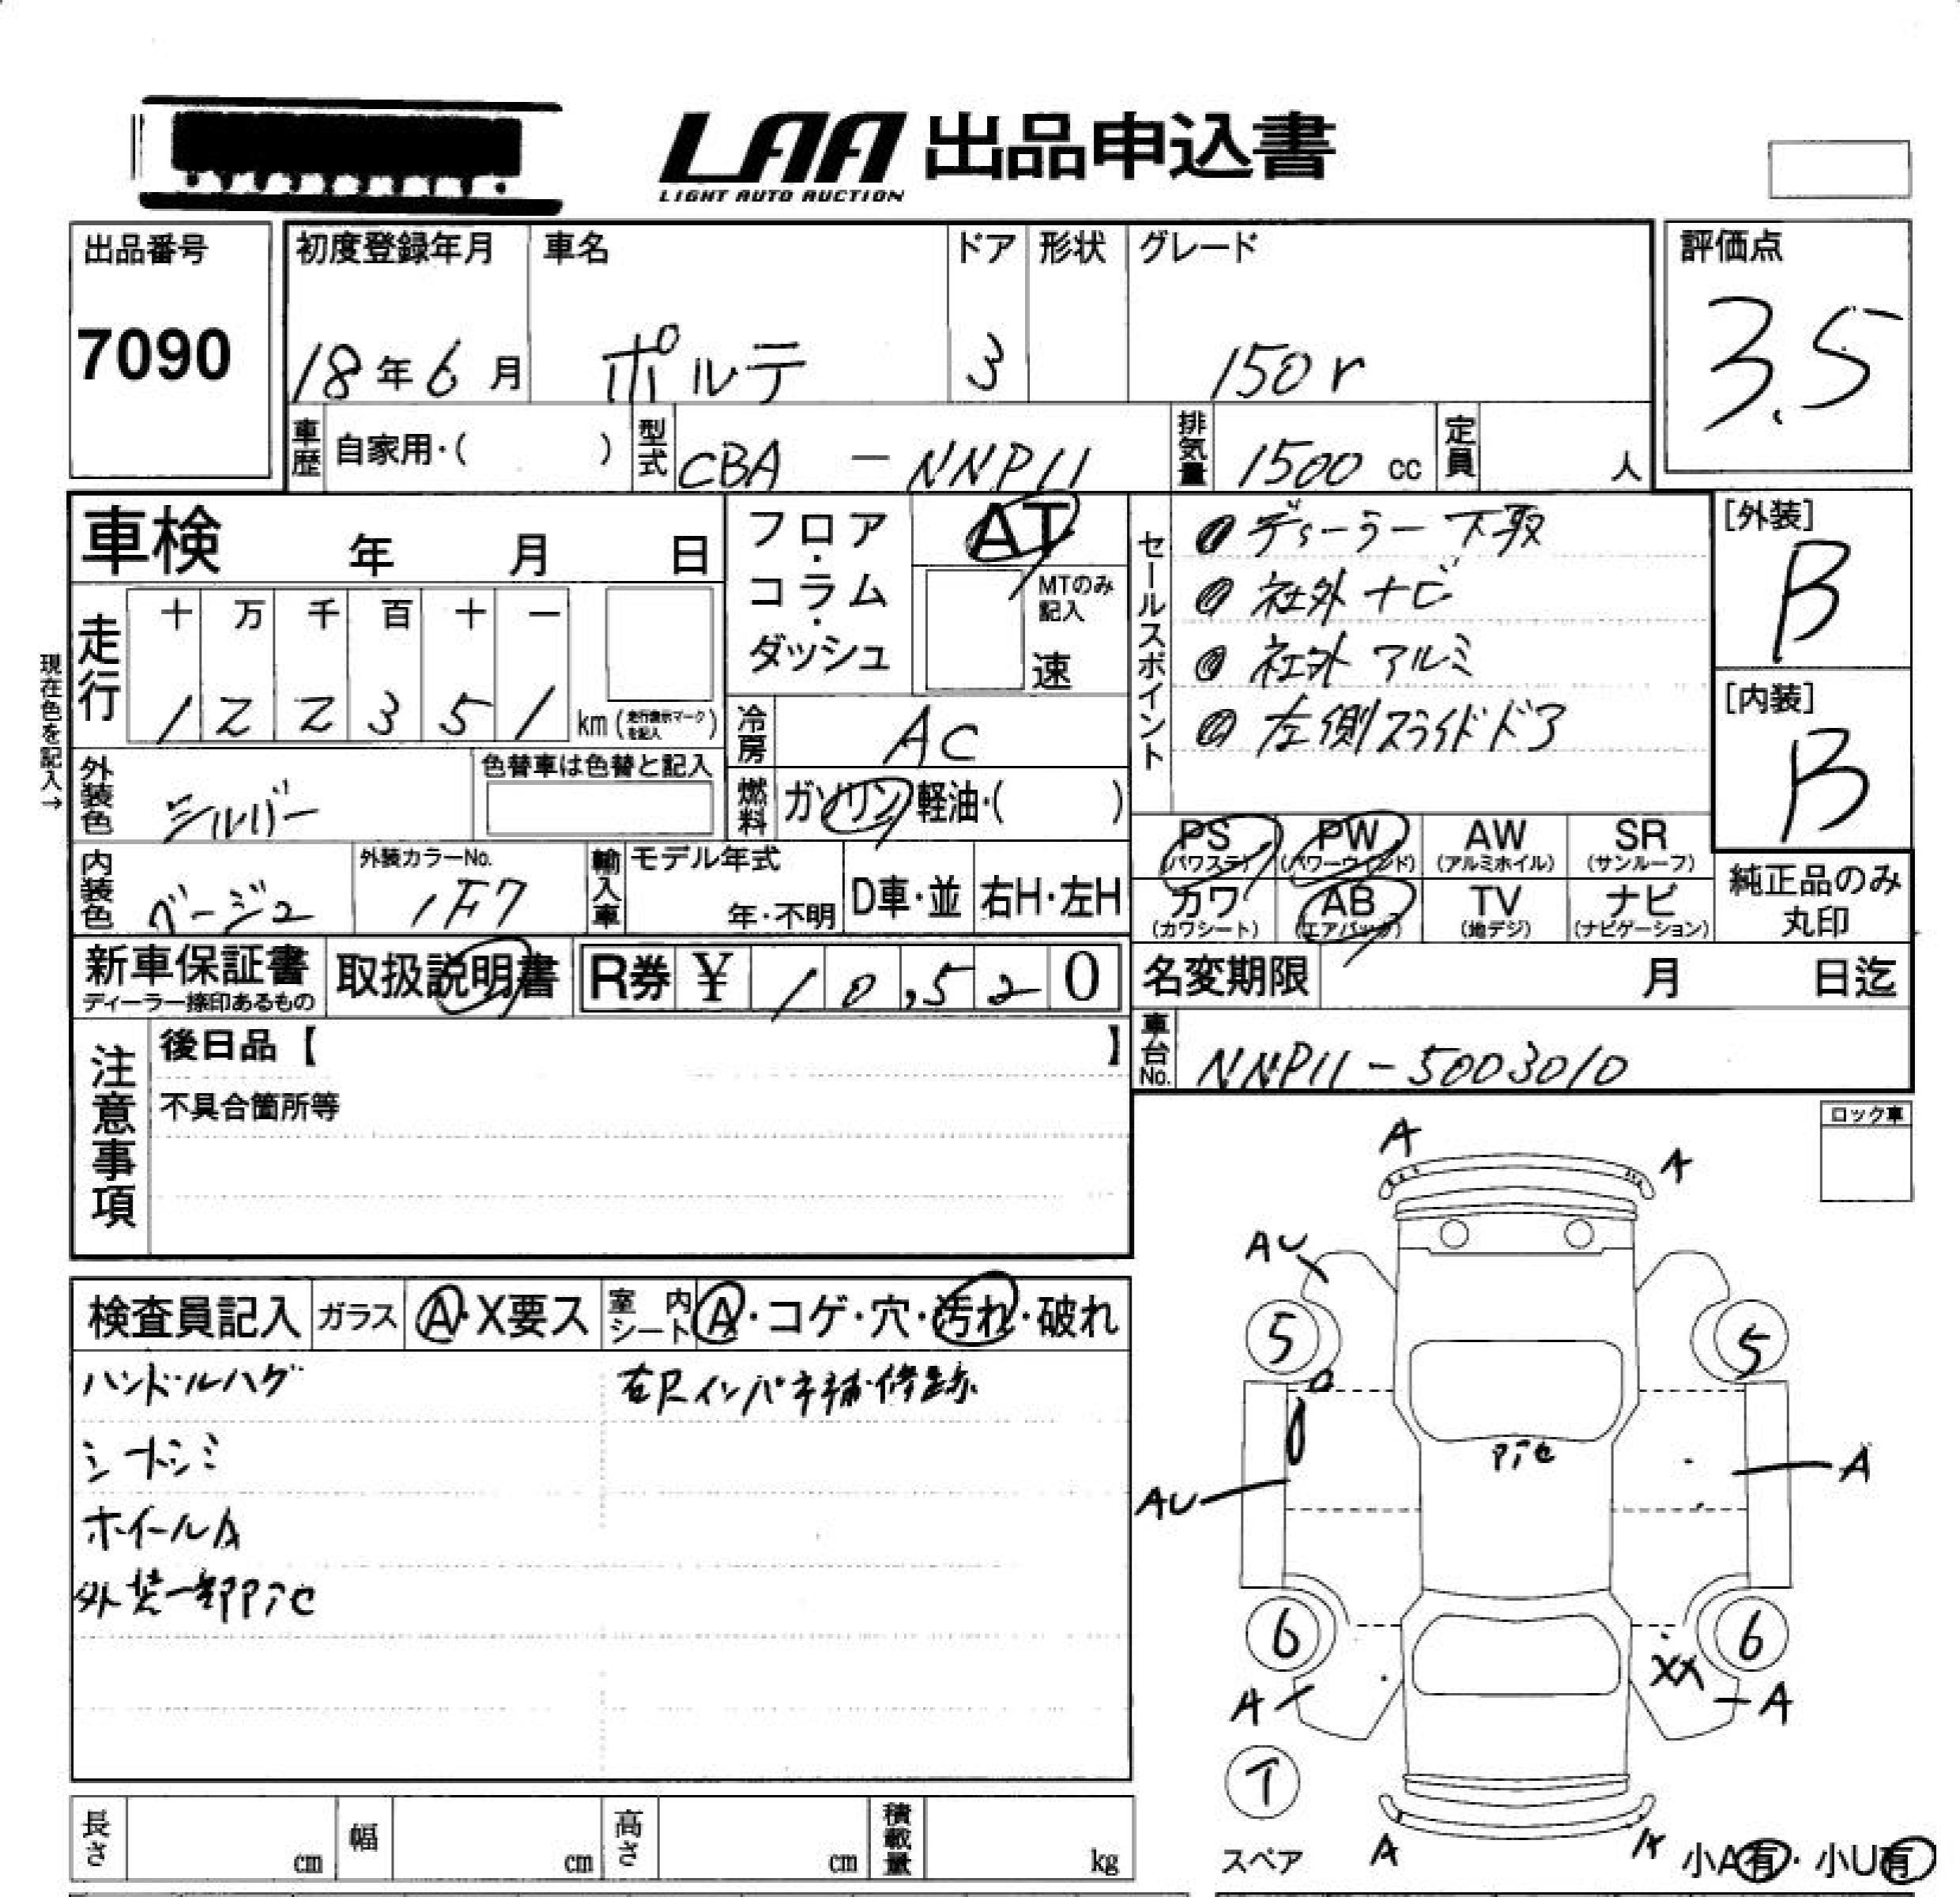 LAA 出品申込書
LIGHT AUTO AUCTION
出品番号
7090
初度登録年月
18年6月
車名
ポルテ
ドア
3
形状
グレード
150r
評価点
3.5
車歴
自家用・( )
型式
CBA - NNP11
排気量
1500 cc
定員
人
車検 年 月 日
フロア・コラム・ダッシュ
AT
MTのみ記入
速
セールスポイント
ディーラー下取
社外ナビ
社外アルミ
左側スライドドア
[外装]
B
[内装]
B
現在色を記入→
走行
十 万 千 百 十 一
1 2 2 3 5 1 km (走行表示マークを記入)
冷房
AC
外装色
シルバー
色替車は色替と記入
燃料
ガソリン・軽油・( )
PS (パワステ)
PW (パワーウィンド)
AW (アルミホイル)
SR (サンルーフ)
カワ (カワシート)
AB (エアバッグ)
TV (地デジ)
ナビ (ナビゲーション)
純正品のみ丸印
内装色
ベージュ
外装カラーNo.
1F7
輸入車
モデル年式
年・不明
D車・並
右H・左H
新車保証書
ディーラー捺印あるもの
取扱説明書
R券 ¥ 10,520
名変期限 月 日迄
車台No.
NNP11-5003010
注意事項
後日品【 】
不具合箇所等
ロック車
検査員記入
ガラス
A・X要ス
室内シート
A・コゲ・穴・汚れ・破れ
ハンドルハゲ
シートシミ
ホイールA
外装一部
右Rインパネ補修跡
A
A
AU
5
5
AU
A
6
6
XX
A
A
スペア
A
小A有・小U有
長さ cm
幅 cm
高さ cm
積載量 kg